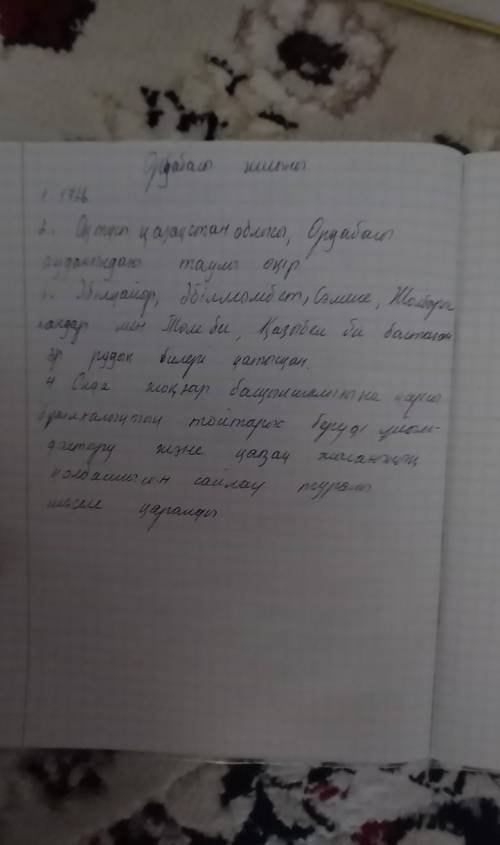 Ордабасы жиыны.
1. 1726
2. Оңтүстік Қазақстан облысы, Ордабасы
ауданындағы таулы өңір
3. Әбілқайыр, Әбілмәмбет, Сәмеке, Жолбарыс
хандар мен Төле би, Қазыбек би бастаған
әр рудың билері қатысқан.
4 Онда жоңғар басқыншылығына қарсы
бүкілхалықтық тойтарыс беруді ұйым-
дастыру және қазақ жасағының
қолбасшысын сайлау туралы
мәселе қаралды